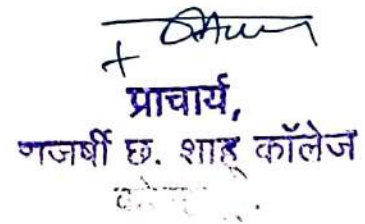 प्राचार्य,
राजर्षी छ. शाहू कॉलेज